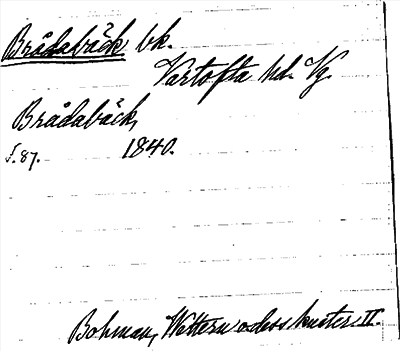 Brådabäck bk.
Vartofta hd. Vg.
Brådabäck,
s. 87. 1840.
Bohman, Wettern o dess kuster. II.